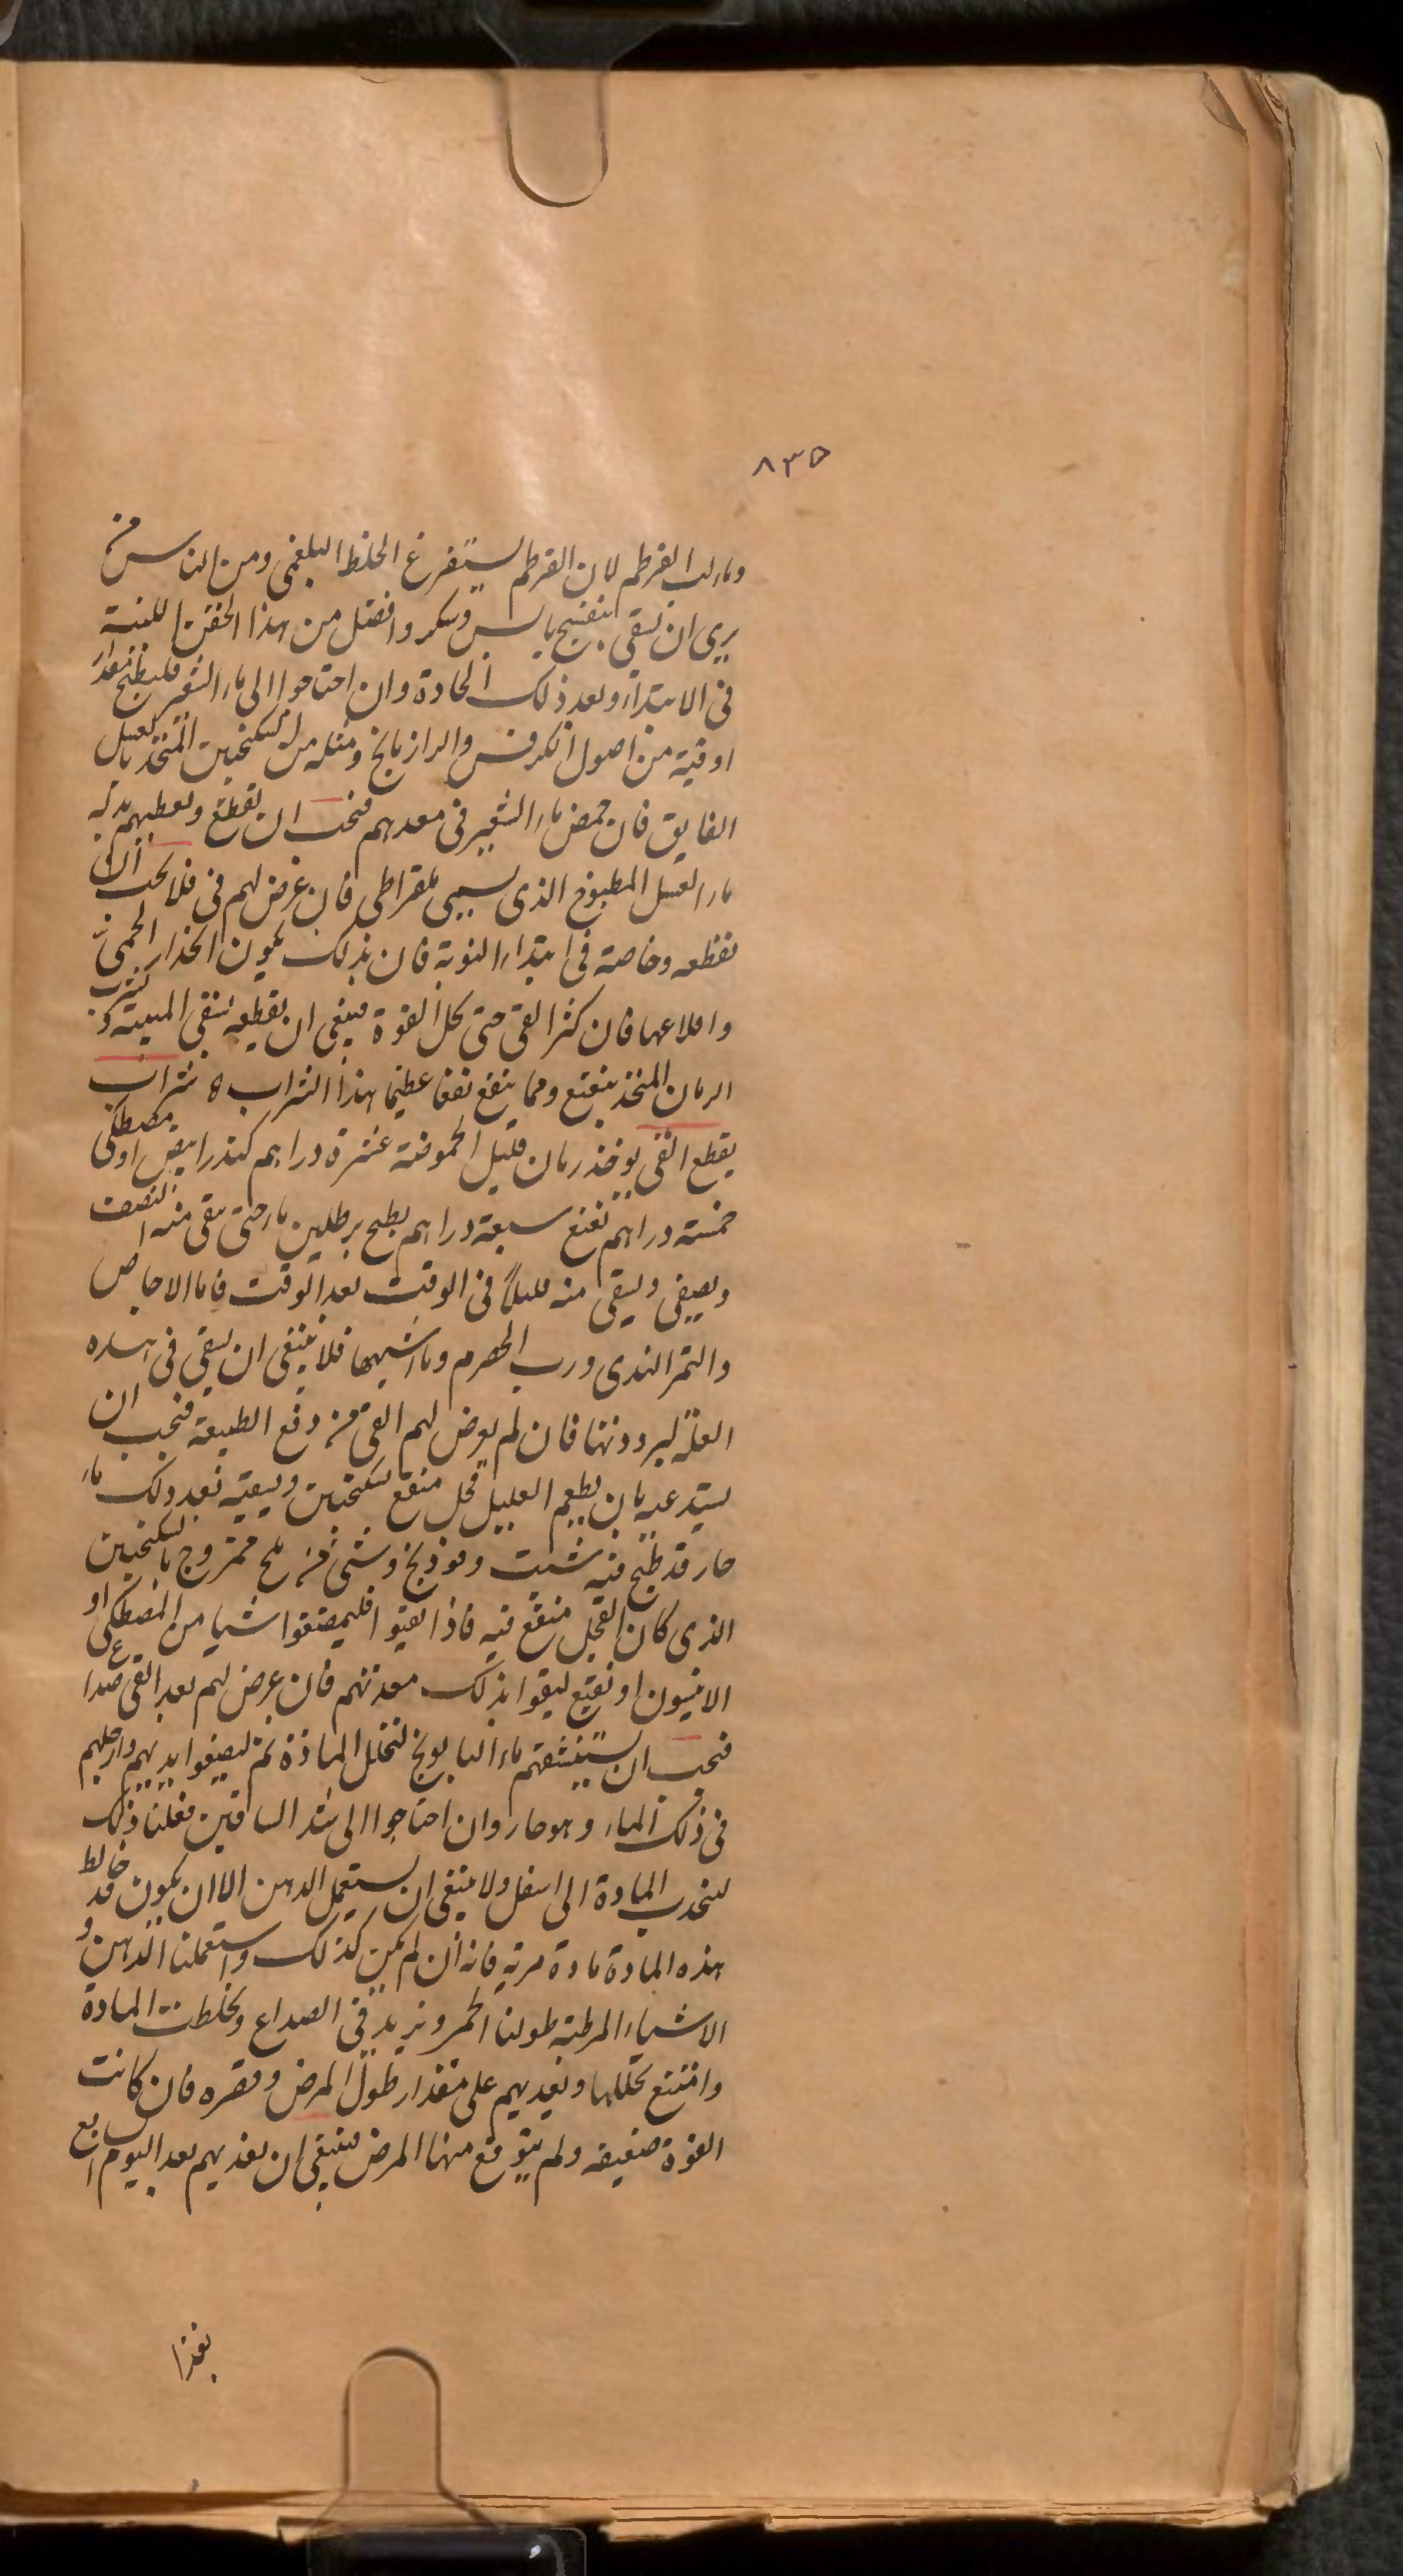 ٨٣٥
وماء لب القرطم لان القرطم يستفرغ الخلط البلغمى ومن الناس من
يرى ان يسقى بنفسج يابس وسكر وافضل من هذا الحقن اللينة
فى الابتداء وبعد ذلك الحادة وان احتاجوا الى ماء الشعير فليطبخ مقدار
اوقية من اصول الكرفس والرازيانج ومثله من السكنجبين المتخذ بالعسل
الفايق فان حمض ماء الشعير فى معدهم فيجب ان تقطع وتعطيهم بدله
ماء العسل المطبوخ الذى يسمى ملقراطى فان عرض لهم قى فلا يجب ان
نقطعه وخاصة فى ابتداء النوبة فان بذلك يكون انحدار الحمى
واقلاعها فان كثر القى حتى يحل القوة فينبغى ان يقطعه بسقى الميبة وشراب
الرمان المتخذ بنعنع ومما ينفع نفعا عظيما هذا الشراب ٥ شراب
يقطع القى يوخذ رمان قليل الحموضة عشرة دراهم كندر ابيض او مصطكى
خمسة دراهم نعنع سبعة دراهم يطبخ برطلين ماء حتى يبقى منه النصف
ويصفى ويسقى منه قليلاً فى الوقت بعد الوقت فاما الاجاص
والتمر الهندى ورب الحصرم وما اشبهها فلا ينبغى ان يسقى فى هذه
العلة لبرودتها فان لم يعرض لهم القى من دفع الطبيعة فيجب ان
يستدعيه بان يطعم العليل فجل منقع بسكنجبين ويسقيه بعد ذلك ماء
حار قد طبخ فيه شبت وفوذنج وشى من ملح ممزوج بالسكنجبين
الذى كان الفجل منقع فيه فاذا تقيوا فليمضغوا شيا من المصطكى او
الانيسون او نعنع ليقوا بذلك معدتهم فان عرض لهم بعد القى صداع
فيجب ان يستنشقهم ماء البابونج لتحلل المادة ثم ليضعوا ايديهم وارجلهم
فى ذلك الماء وهو حار وان احتاجوا الى شد الساقين فعلنا ذلك
لينجذب المادة الى اسفل ولا ينبغى ان يستعمل الدهن الا ان يكون قد خالط
هذه المادة مادة مرية فانه ان لم يكن كذلك واستعملنا الدهن و
الاشياء المرطبة طولنا الحمى ونزيد فى الصداع وتخلطت المادة
وامتنع تحللها ونغذيهم على مقدار طول المرض وقصره فان كانت
القوة ضعيفه ولم يتوقع منها المرض فينبغى ان نغذيهم بعد اليوم السابع
بغذا